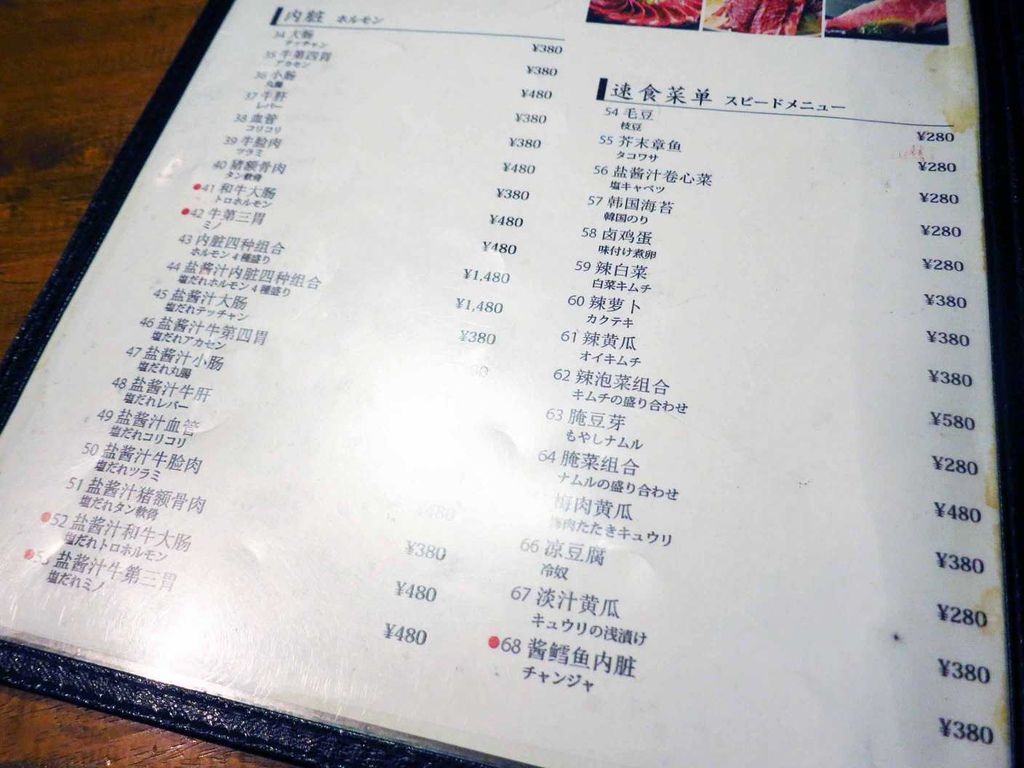 内脏 ホルモン
34 大肠 ¥380
テッチャン
35 牛第四胃 ¥380
アカセン
36 小肠 ¥480
丸腸
37 牛肝 ¥380
レバー
38 血管 ¥380
コリコリ
39 牛脸肉 ¥480
ツラミ
40 猪额骨肉 ¥380
タン軟骨
41 和牛大肠 ¥480
トロホルモン
42 牛第三胃 ¥480
ミノ
43 内脏四种组合 ¥1,480
ホルモン4種盛り
44 盐酱汁内脏四种组合 ¥1,480
塩だれホルモン4種盛り
45 盐酱汁大肠 ¥380
塩だれテッチャン
46 盐酱汁牛第四胃
塩だれアカセン
47 盐酱汁小肠
塩だれ丸腸
48 盐酱汁牛肝
塩だれレバー
49 盐酱汁血管
塩だれコリコリ
50 盐酱汁牛脸肉 ¥480
塩だれツラミ
51 盐酱汁猪额骨肉 ¥380
塩だれタン軟骨
52 盐酱汁和牛大肠 ¥480
塩だれトロホルモン
53 盐酱汁牛第三胃 ¥480
塩だれミノ
速食菜单 スピードメニュー
54 毛豆 ¥280
枝豆
55 芥末章鱼 ¥280
タコワサ
56 盐酱汁卷心菜 ¥280
塩キャベツ
57 韩国海苔 ¥280
韓国のり
58 卤鸡蛋 ¥280
味付け煮卵
59 辣白菜 ¥380
白菜キムチ
60 辣萝卜 ¥380
カクテキ
61 辣黄瓜 ¥380
オイキムチ
62 辣泡菜组合 ¥580
キムチの盛り合わせ
63 腌豆芽 ¥280
もやしナムル
64 腌菜组合 ¥480
ナムルの盛り合わせ
梅肉黄瓜 ¥380
梅肉たたきキュウリ
66 凉豆腐 ¥280
冷奴
67 淡汁黄瓜 ¥380
キュウリの浅漬け
68 酱鳕鱼内脏 ¥380
チャンジャ